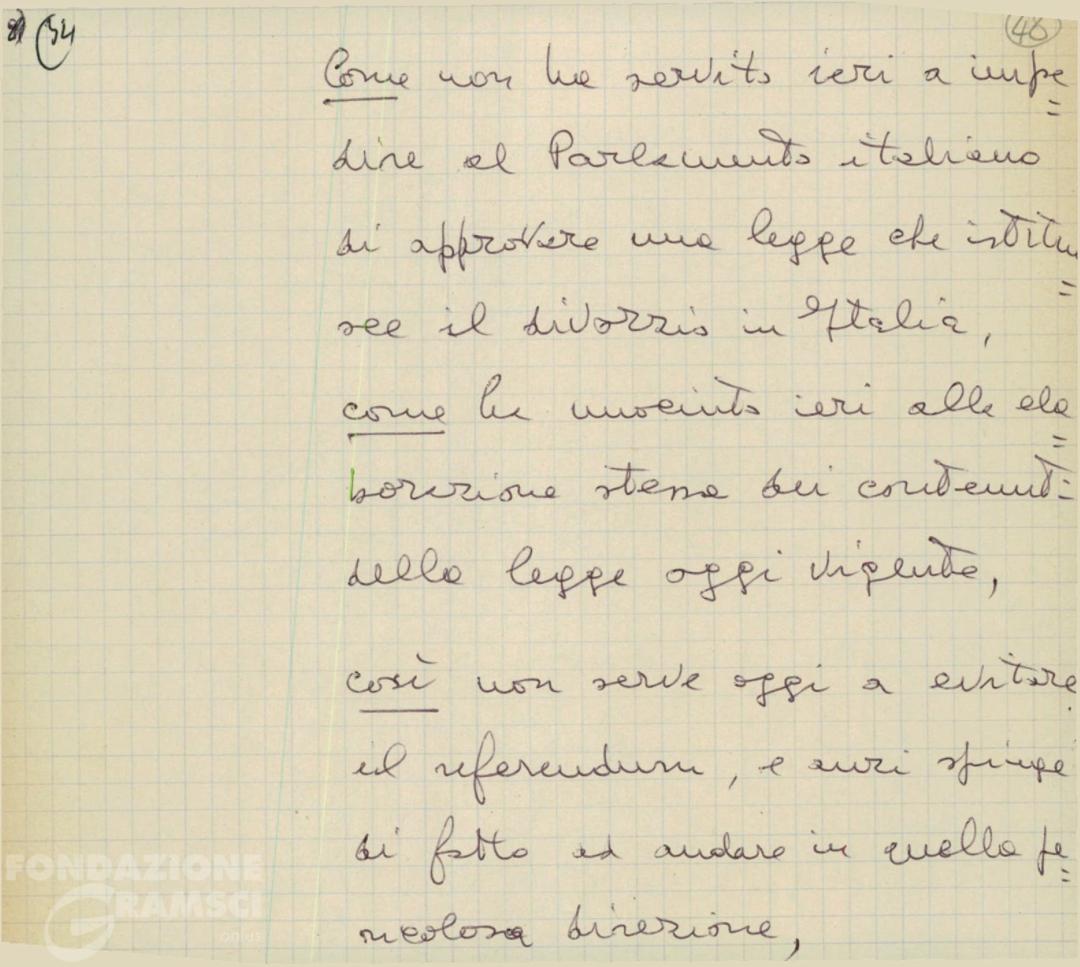 34
48
Come non ha servito ieri a impe=
dire al Parlamento italiano
di approvare una legge che istitui=
sce il divorzio in Italia,
come ha nuociuto ieri alla ela=
borazione stessa dei contenuti
della legge oggi vigente,
così non serve oggi a evitare
il referendum, e anzi spinge
di fatto ad andare in quella pe=
ricolosa direzione,
FONDAZIONE
GRAMSCI
onlus